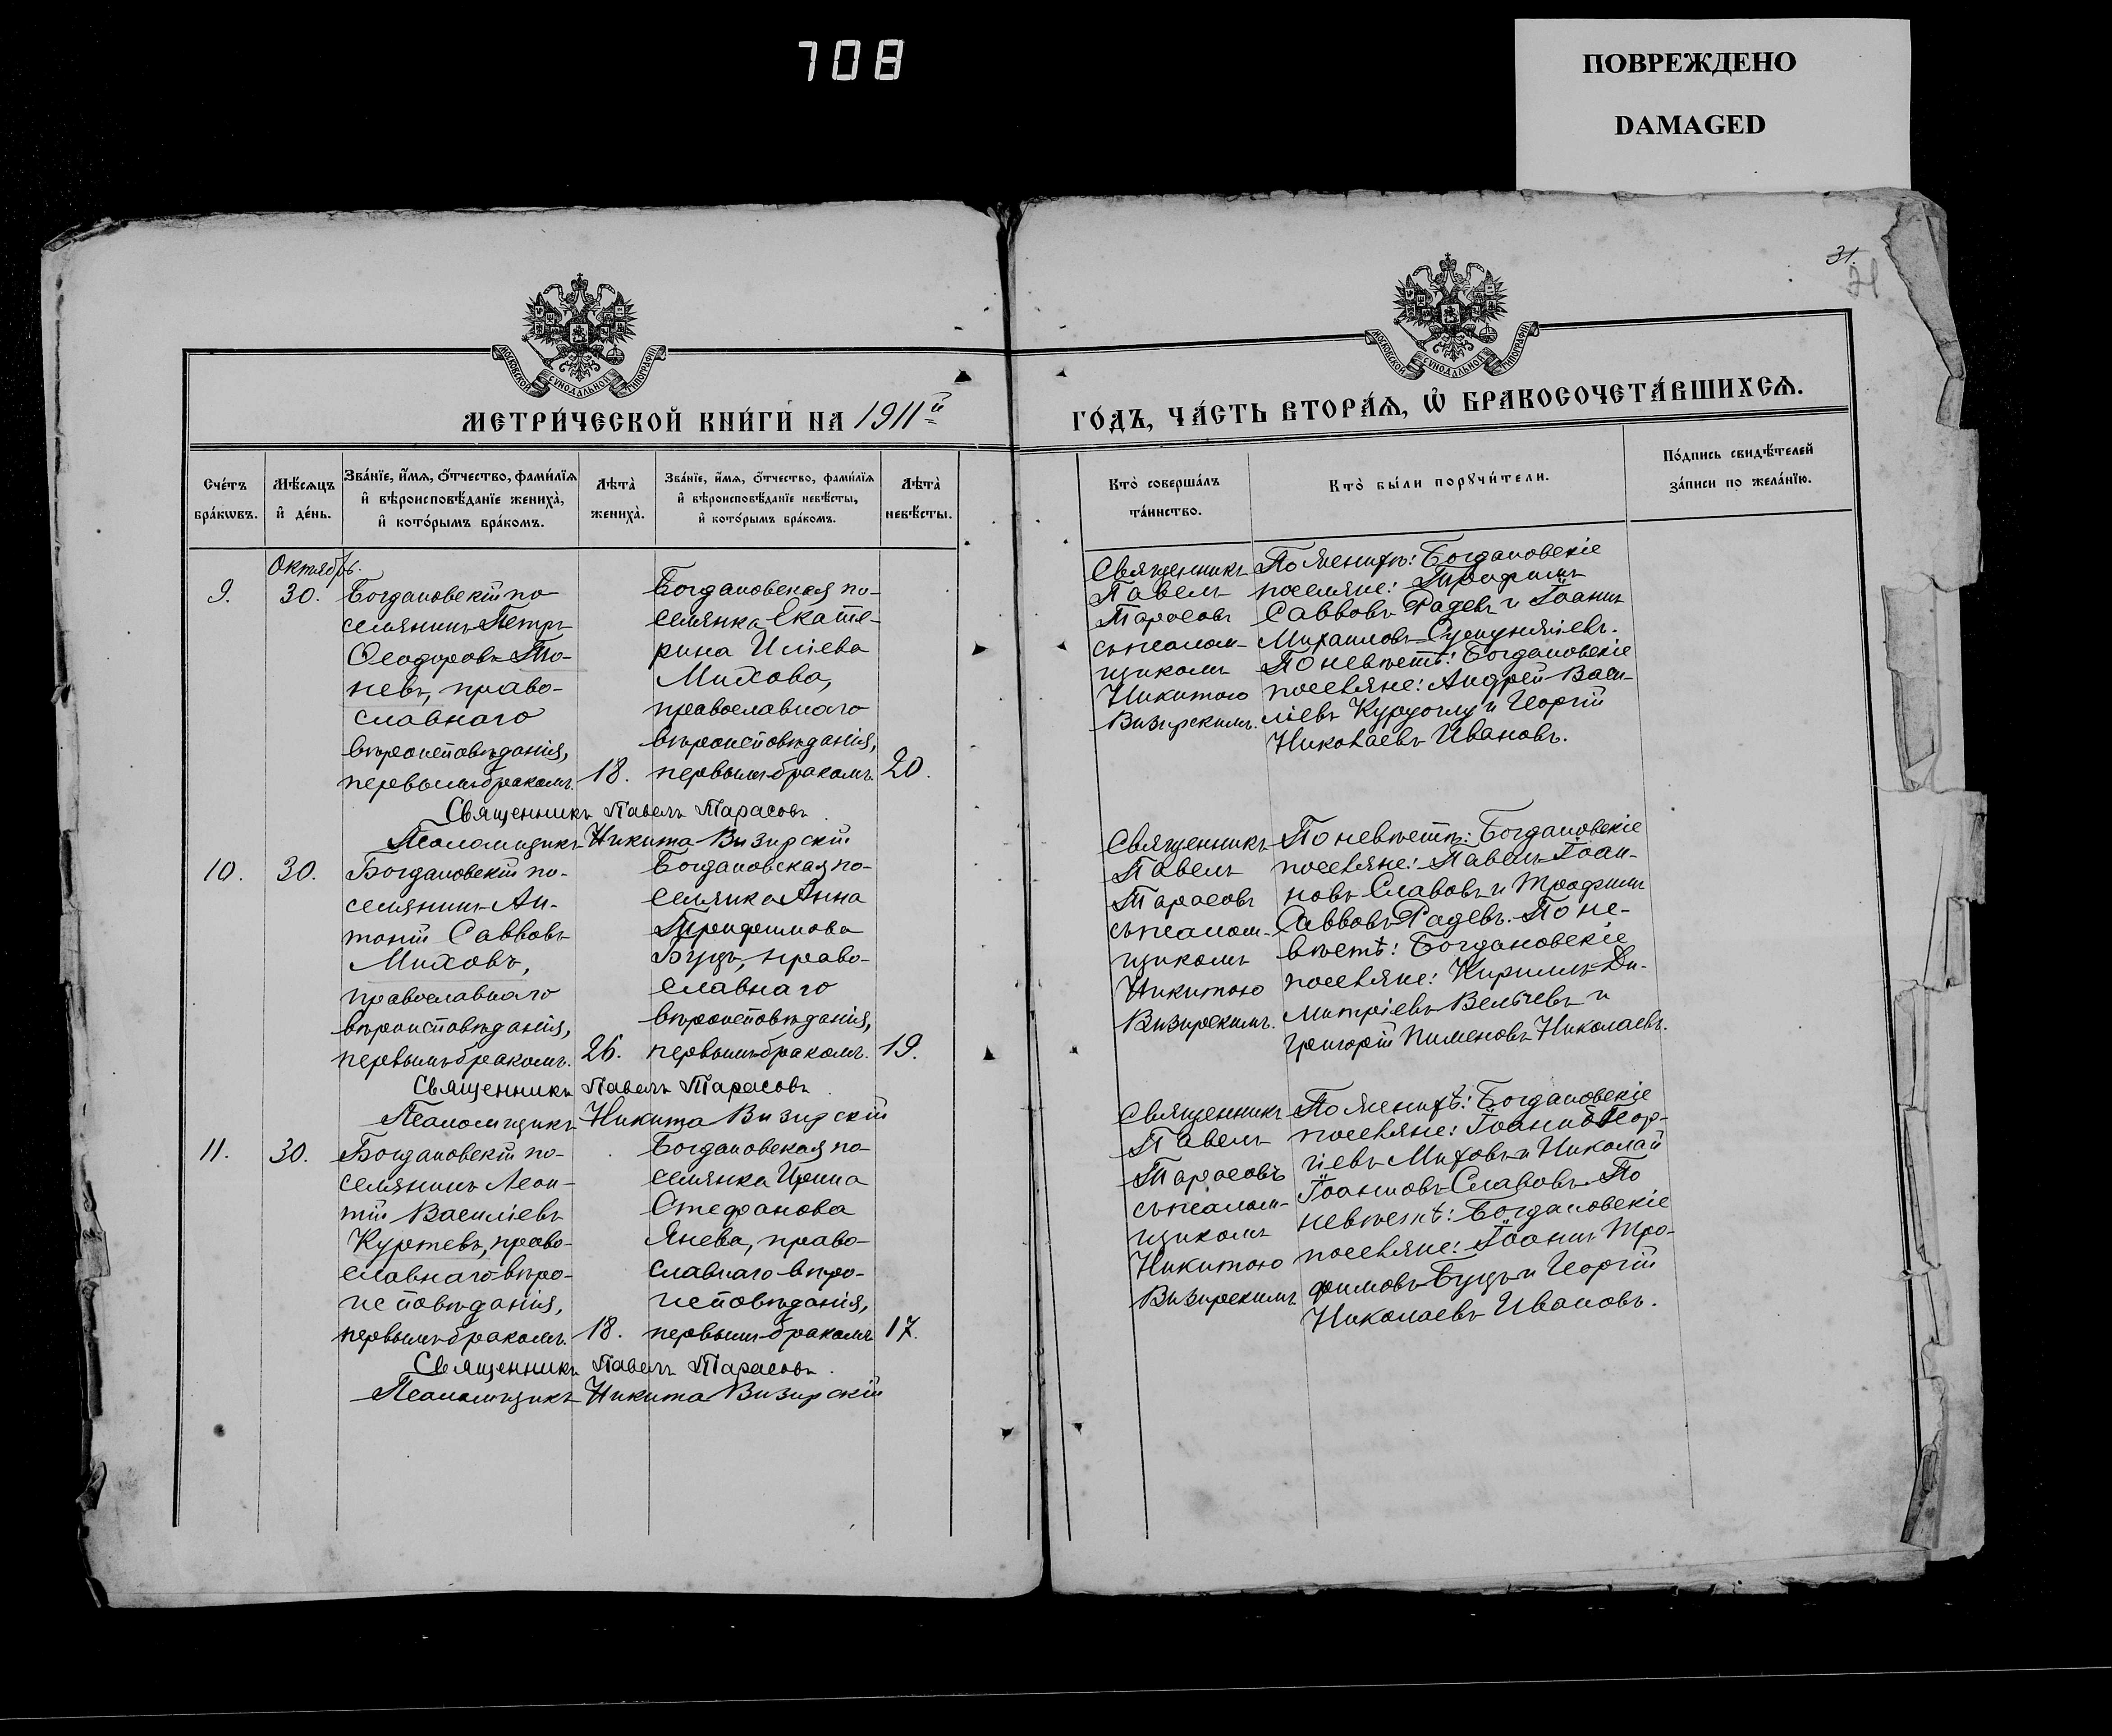 708
ПОВРЕЖДЕНО
DAMAGED
31.
МОСКОВСКОЙ СУНОДАЛЬНОЙ ТИПОГРАФІИ
МОСКОВСКОЙ СУНОДАЛЬНОЙ ТИПОГРАФІИ
МЕТРИ́ЧЕСКОЙ КНИ́ГИ НА 1911й
ГО́ДЪ, ЧА́СТЬ ВТОРА́Ѧ, Ѽ БРАКОСОЧЕТА́ВШИХСѦ.
Сче́тъ
бра́кѡвъ.
Мѣ́сѧцъ
и҆ де́нь.
Зва́нїе, и҆́мѧ, ѻ҆́тчество, фами́лїѧ
и҆ вѣроисповѣ́данїе жениха̀,
и҆ кото́рымъ бра́комъ.
Лѣта̀
жениха̀.
Зва́нїе, и҆́мѧ, ѻ҆́тчество, фами́лїѧ
и҆ вѣроисповѣ́данїе невѣ́сты,
и҆ кото́рымъ бра́комъ.
Лѣта̀
невѣ́сты.
Кто̀ соверша́лъ
та́инство.
Кто̀ бы́ли порꙋчи́тели.
По́дпись свидѣ́телей
за́писи по жела́нїю.
Октябрь.
9.
30.
Богдановскій по-
селянинъ Петръ
Ѳеодоровъ То-
невъ, право-
славнаго
вѣроисповѣданія,
первымъ бракомъ.
18.
Богдановская по-
селянка Екате-
рина Иліева
Михова,
православнаго
вѣроисповѣданія,
первымъ бракомъ.
20.
Священникъ
Павелъ
Тарасовъ
съ псалом-
щикомъ
Никитою
Визирскимъ.
По женихѣ: Богдановскіе
поселяне: Трофимъ
Саввовъ Радевъ и Іоаннъ
Михаиловъ
По невѣстѣ: Богдановскіе
поселяне: Андрей Васи-
ліевъ Курдоглу и Георгій
Николаевъ Ивановъ.
Священникъ Павелъ Тарасовъ
Псаломщикъ Никита Визирскій
10.
30.
Богдановскій по-
селянинъ Ан-
тоній Саввовъ
Миховъ,
православнаго
вѣроисповѣданія,
первымъ бракомъ.
26.
Богдановская по-
селянка Анна
Трофимова
Буцъ, право-
славнаго
вѣроисповѣданія,
первымъ бракомъ.
19.
Священникъ
Павелъ
Тарасовъ
съ псалом-
щикомъ
Никитою
Визирскимъ.
По невѣстѣ: Богдановскіе
поселяне: Павелъ Іоан-
новъ Славовъ и Трофимъ
Саввовъ Радевъ. По не-
вѣстѣ: Богдановскіе
поселяне: Кириллъ Ди-
митріевъ Вельчевъ и
Григорій Пименовъ Николаевъ.
Священникъ Павелъ Тарасовъ
Псаломщикъ Никита Визирскій
11.
30.
Богдановскій по-
селянинъ Леон-
тій Василіевъ
Куртевъ, право-
славнаго вѣро-
исповѣданія,
первымъ бракомъ.
18.
Богдановская по-
селянка Ирина
Стефанова
Янева, право-
славнаго вѣро-
исповѣданія,
первымъ бракомъ
17.
Священникъ
Павелъ
Тарасовъ
съ псалом-
щикомъ
Никитою
Визирскимъ.
По женихѣ: Богдановскіе
поселяне: Іоаннъ Геор-
гіевъ Миховъ и Николай
Іоанновъ Славовъ. По
невѣстѣ: Богдановскіе
поселяне: Іоаннъ Тро-
фимовъ Буцъ и Георгій
Николаевъ Ивановъ.
Священникъ Павелъ Тарасовъ.
Псаломщикъ Никита Визирскій